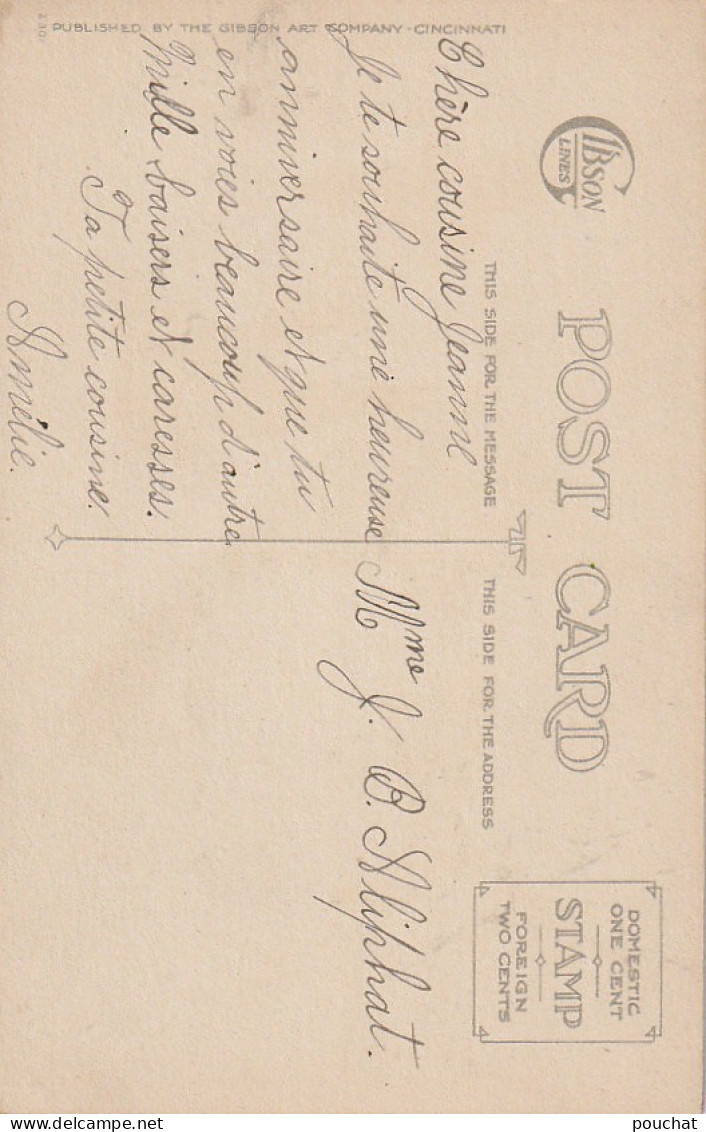 GIBSON
LINES
POST CARD
THIS SIDE FOR THE MESSAGE
THIS SIDE FOR THE ADDRESS
DOMESTIC
ONE CENT
STAMP
FOREIGN
TWO CENTS
Chère cousine Jeanne
Je te souhaite une heureuse
anniversaire et que tu
en voies beaucoup d'autre
Mille baisers et caresses.
Ta petite cousine.
Amélie.
Mme J. B. Aliphat.
PUBLISHED BY THE GIBSON ART COMPANY - CINCINNATI
delcampe.net
pouchat